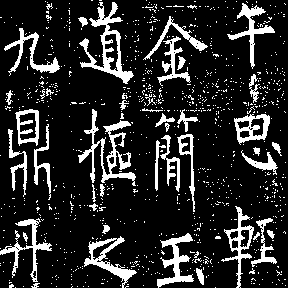 午思輕
金簡玉
道摳之
九鼎丹